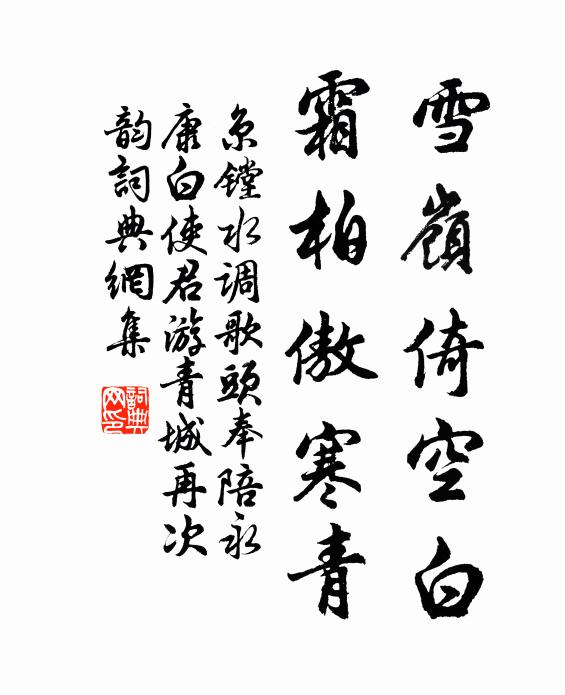 雪嶺倚空白
霜柏傲寒青
京鏜水调歌頭奉陪永
康白使君游青城再次
韵詞典網集
詞典
网印